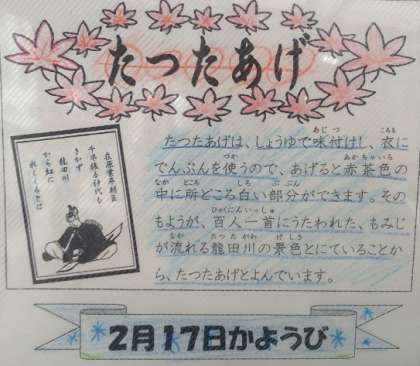 たつたあげ
在原業平朝臣
千早振る神代も
きかず
龍田川
から紅に
水くくるとは
たつたあげは、しょうゆで味付けし、衣に
でんぷんを使うので、あげると赤茶色の
中に所どころ白い部分ができます。その
もようが、百人一首にうたわれた、もみじ
が流れる龍田川の景色とにていることか
ら、たつたあげとよんでいます。
2月17日かようび